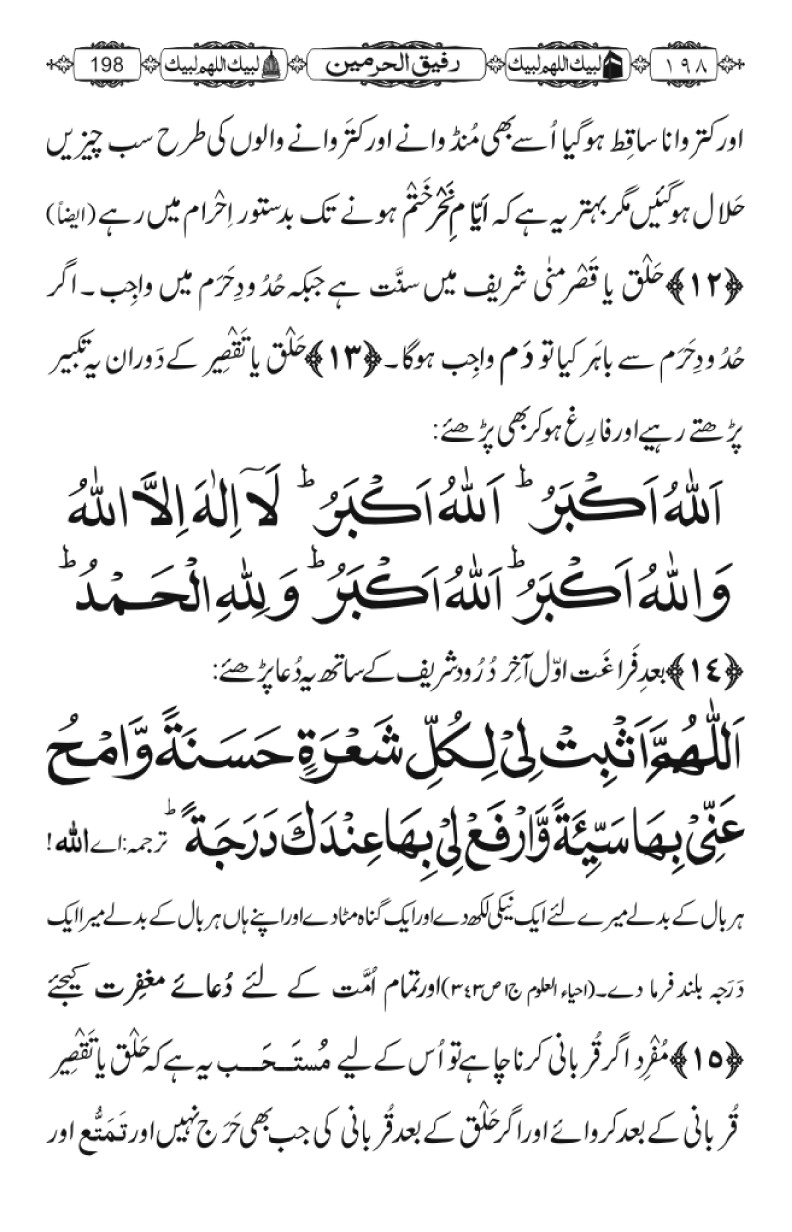 ١٩٨ لبیك اللھم لبیك رفیق الحرمین لبیك اللھم لبیك 198
اور کتروانا ساقِط ہوگیا اُسے بھی مُنڈوانے اور کتَروانے والوں کی طرح سب چیزیں
حَلال ہوگئیں مگر بہتر یہ ہے کہ اَیّامِ نَحْر خَتْم ہونے تک بدستور اِحْرام میں رہے (ایضاً)
﴿١٢﴾ حَلْق یا قَصْر مِنٰی شریف میں سنَّت ہے جبکہ حُدُودِ حَرَم میں واجِب ۔ اگر
حُدُودِ حَرَم سے باہَر کیا تو دَم واجِب ہوگا۔ ﴿١٣﴾ حَلْق یا تَقْصِیر کے دَوران یہ تکبیر
پڑھتے رہیے اور فارِغ ہوکر بھی پڑھئے:
اَللّٰهُ اَكْبَرُ ؕ اَللّٰهُ اَكْبَرُ ؕ لَآ اِلٰهَ اِلَّا اللّٰهُ
وَاللّٰهُ اَكْبَرُ ؕ اَللّٰهُ اَكْبَرُ ؕ وَلِلّٰهِ الْحَمْدُ ؕ
﴿١٤﴾ بعدِ فَراغَت اوّل آخِر دُرُود شریف کے ساتھ یہ دُعا پڑھئے:
اَللّٰهُمَّ اَثْبِتْ لِىْ لِكُلِّ شَعْرَةٍ حَسَنَةً وَّامْحُ
عَنِّىْ بِهَا سَيِّئَةً وَّارْفَعْ لِىْ بِهَا عِنْدَكَ دَرَجَةً ؕ ترجمہ: اے اللّٰه !
ہر بال کے بدلے میرے لئے ایک نیکی لکھ دے اور ایک گناہ مٹا دے اور اپنے ہاں ہر بال کے بدلے میرا ایک
دَرَجہ بلند فرما دے۔ (احیاء العلوم ج۱ ص۳۴۳) اور تمام اُمَّت کے لئے دُعائے مغفِرت کیجئے
﴿١٥﴾ مُفْرِد اگر قُربانی کرنا چاہے تو اُس کے لیے مُستَحَب یہ ہے کہ حَلْق یا تَقْصِیر
قُربانی کے بعد کروائے اور اگر حَلْق کے بعد قُربانی کی جب بھی حَرَج نہیں اور تَمَتُّع اور